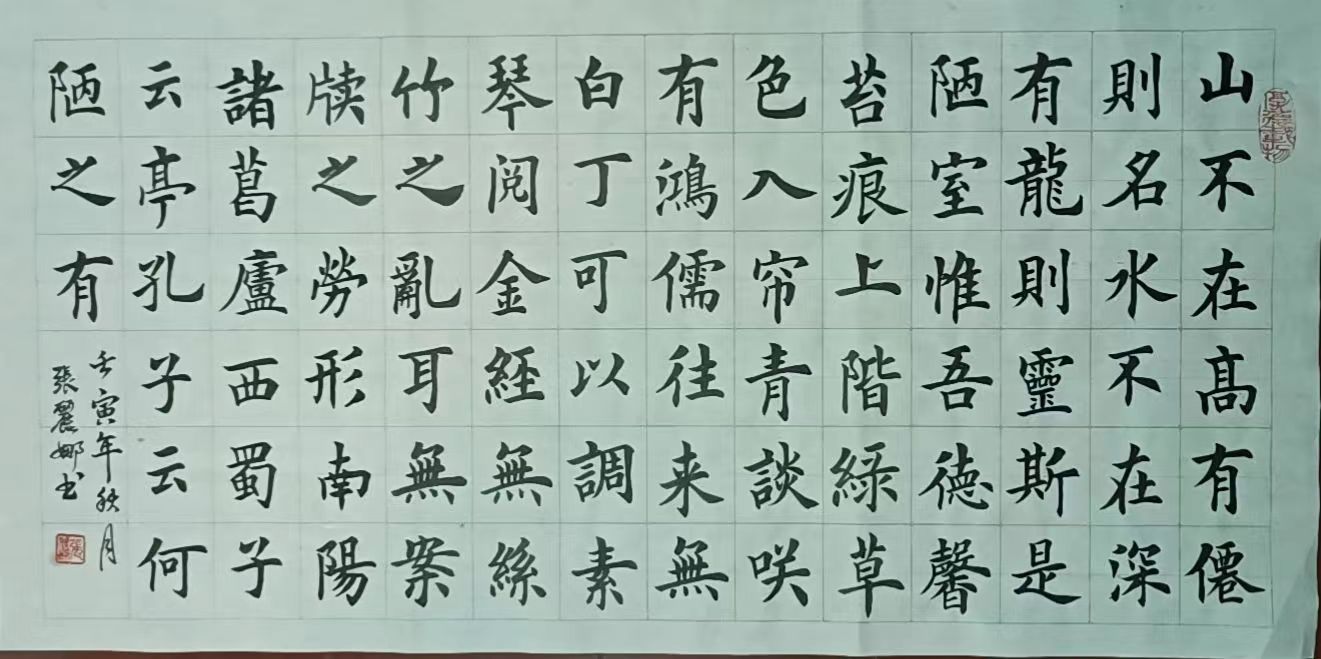 山不在高有僊
則名水不在深
有龍則靈斯是
陋室惟吾德馨
苔痕上階緑草
色入帘青談咲
有鴻儒往来無
白丁可以調素
琴阅金経無絲
竹之亂耳無案
牍之勞形南陽
諸葛廬西蜀子
云亭孔子云何
陋之有
壬寅年秋月
張麗娜书